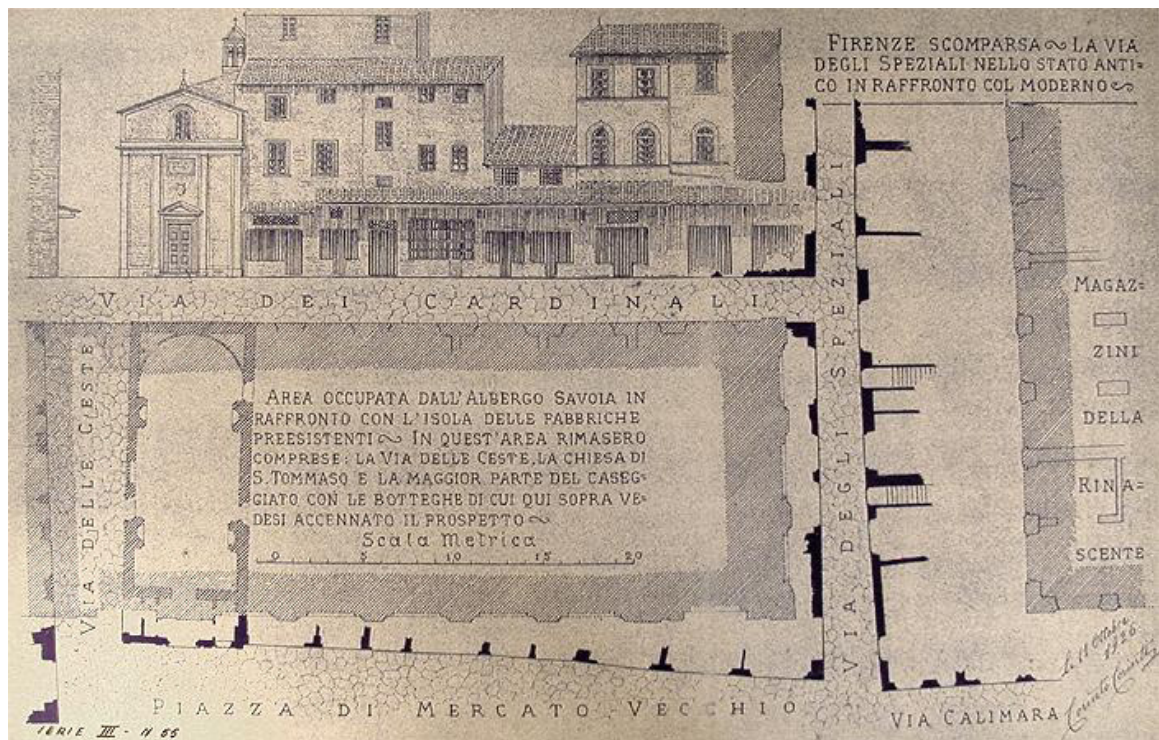 FIRENZE SCOMPARSA ~ LA VIA
DEGLI SPEZIALI NELLO STATO ANTI=
CO IN RAFFRONTO COL MODERNO ~
VIA DEI CARDINALI
VIA DELLE CESTE
AREA OCCUPATA DALL'ALBERGO SAVOIA IN
RAFFRONTO CON L'ISOLA DELLE FABBRICHE
PREESISTENTI ~ IN QUEST'AREA RIMASERO
COMPRESE: LA VIA DELLE CESTE, LA CHIESA DI
S. TOMMASO E LA MAGGIOR PARTE DEL CASEG=
GIATO CON LE BOTTEGHE DI CUI QUI SOPRA VE=
DESI ACCENNATO IL PROSPETTO ~
Scala Metrica
0 5 10 15 20
VIA DEGLI SPEZIALI
MAGAZ=
ZINI
DELLA
RINA=
SCENTE
PIAZZA DI MERCATO VECCHIO
VIA CALIMARA
Ottobre
1926
Corinto Corinti
SERIE III - N 55